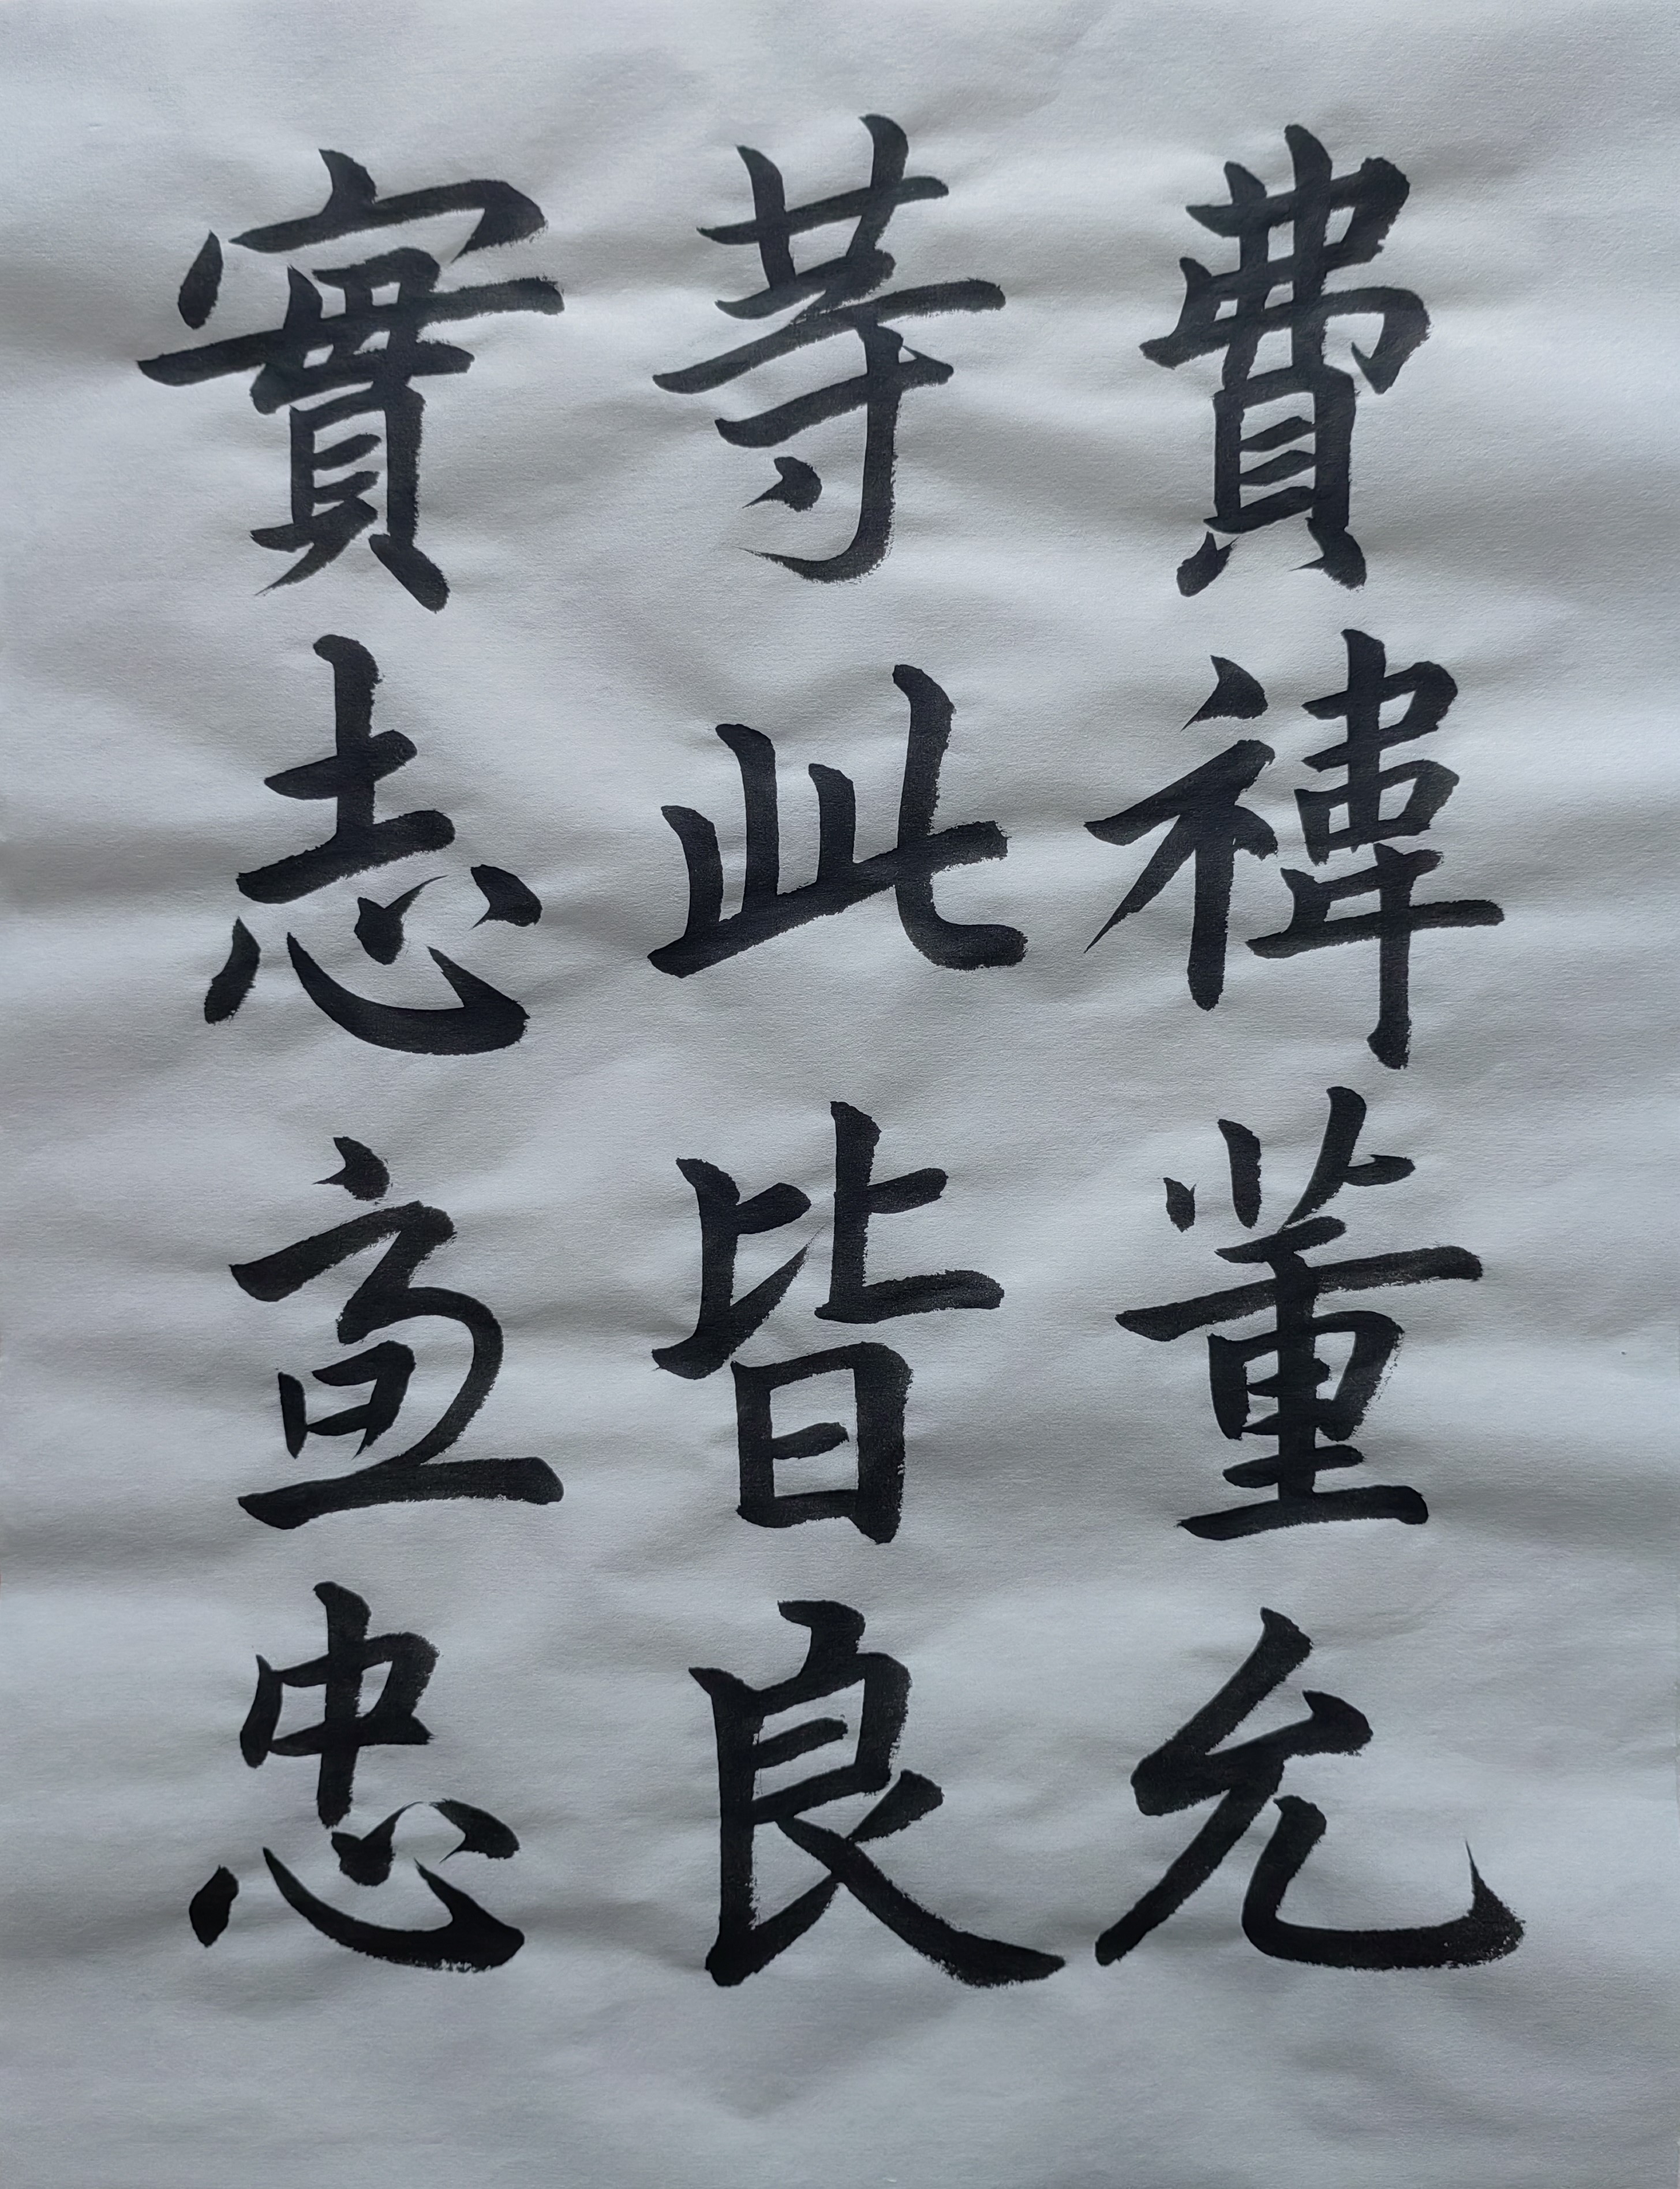 費禕董允
等此皆良
實志慮忠